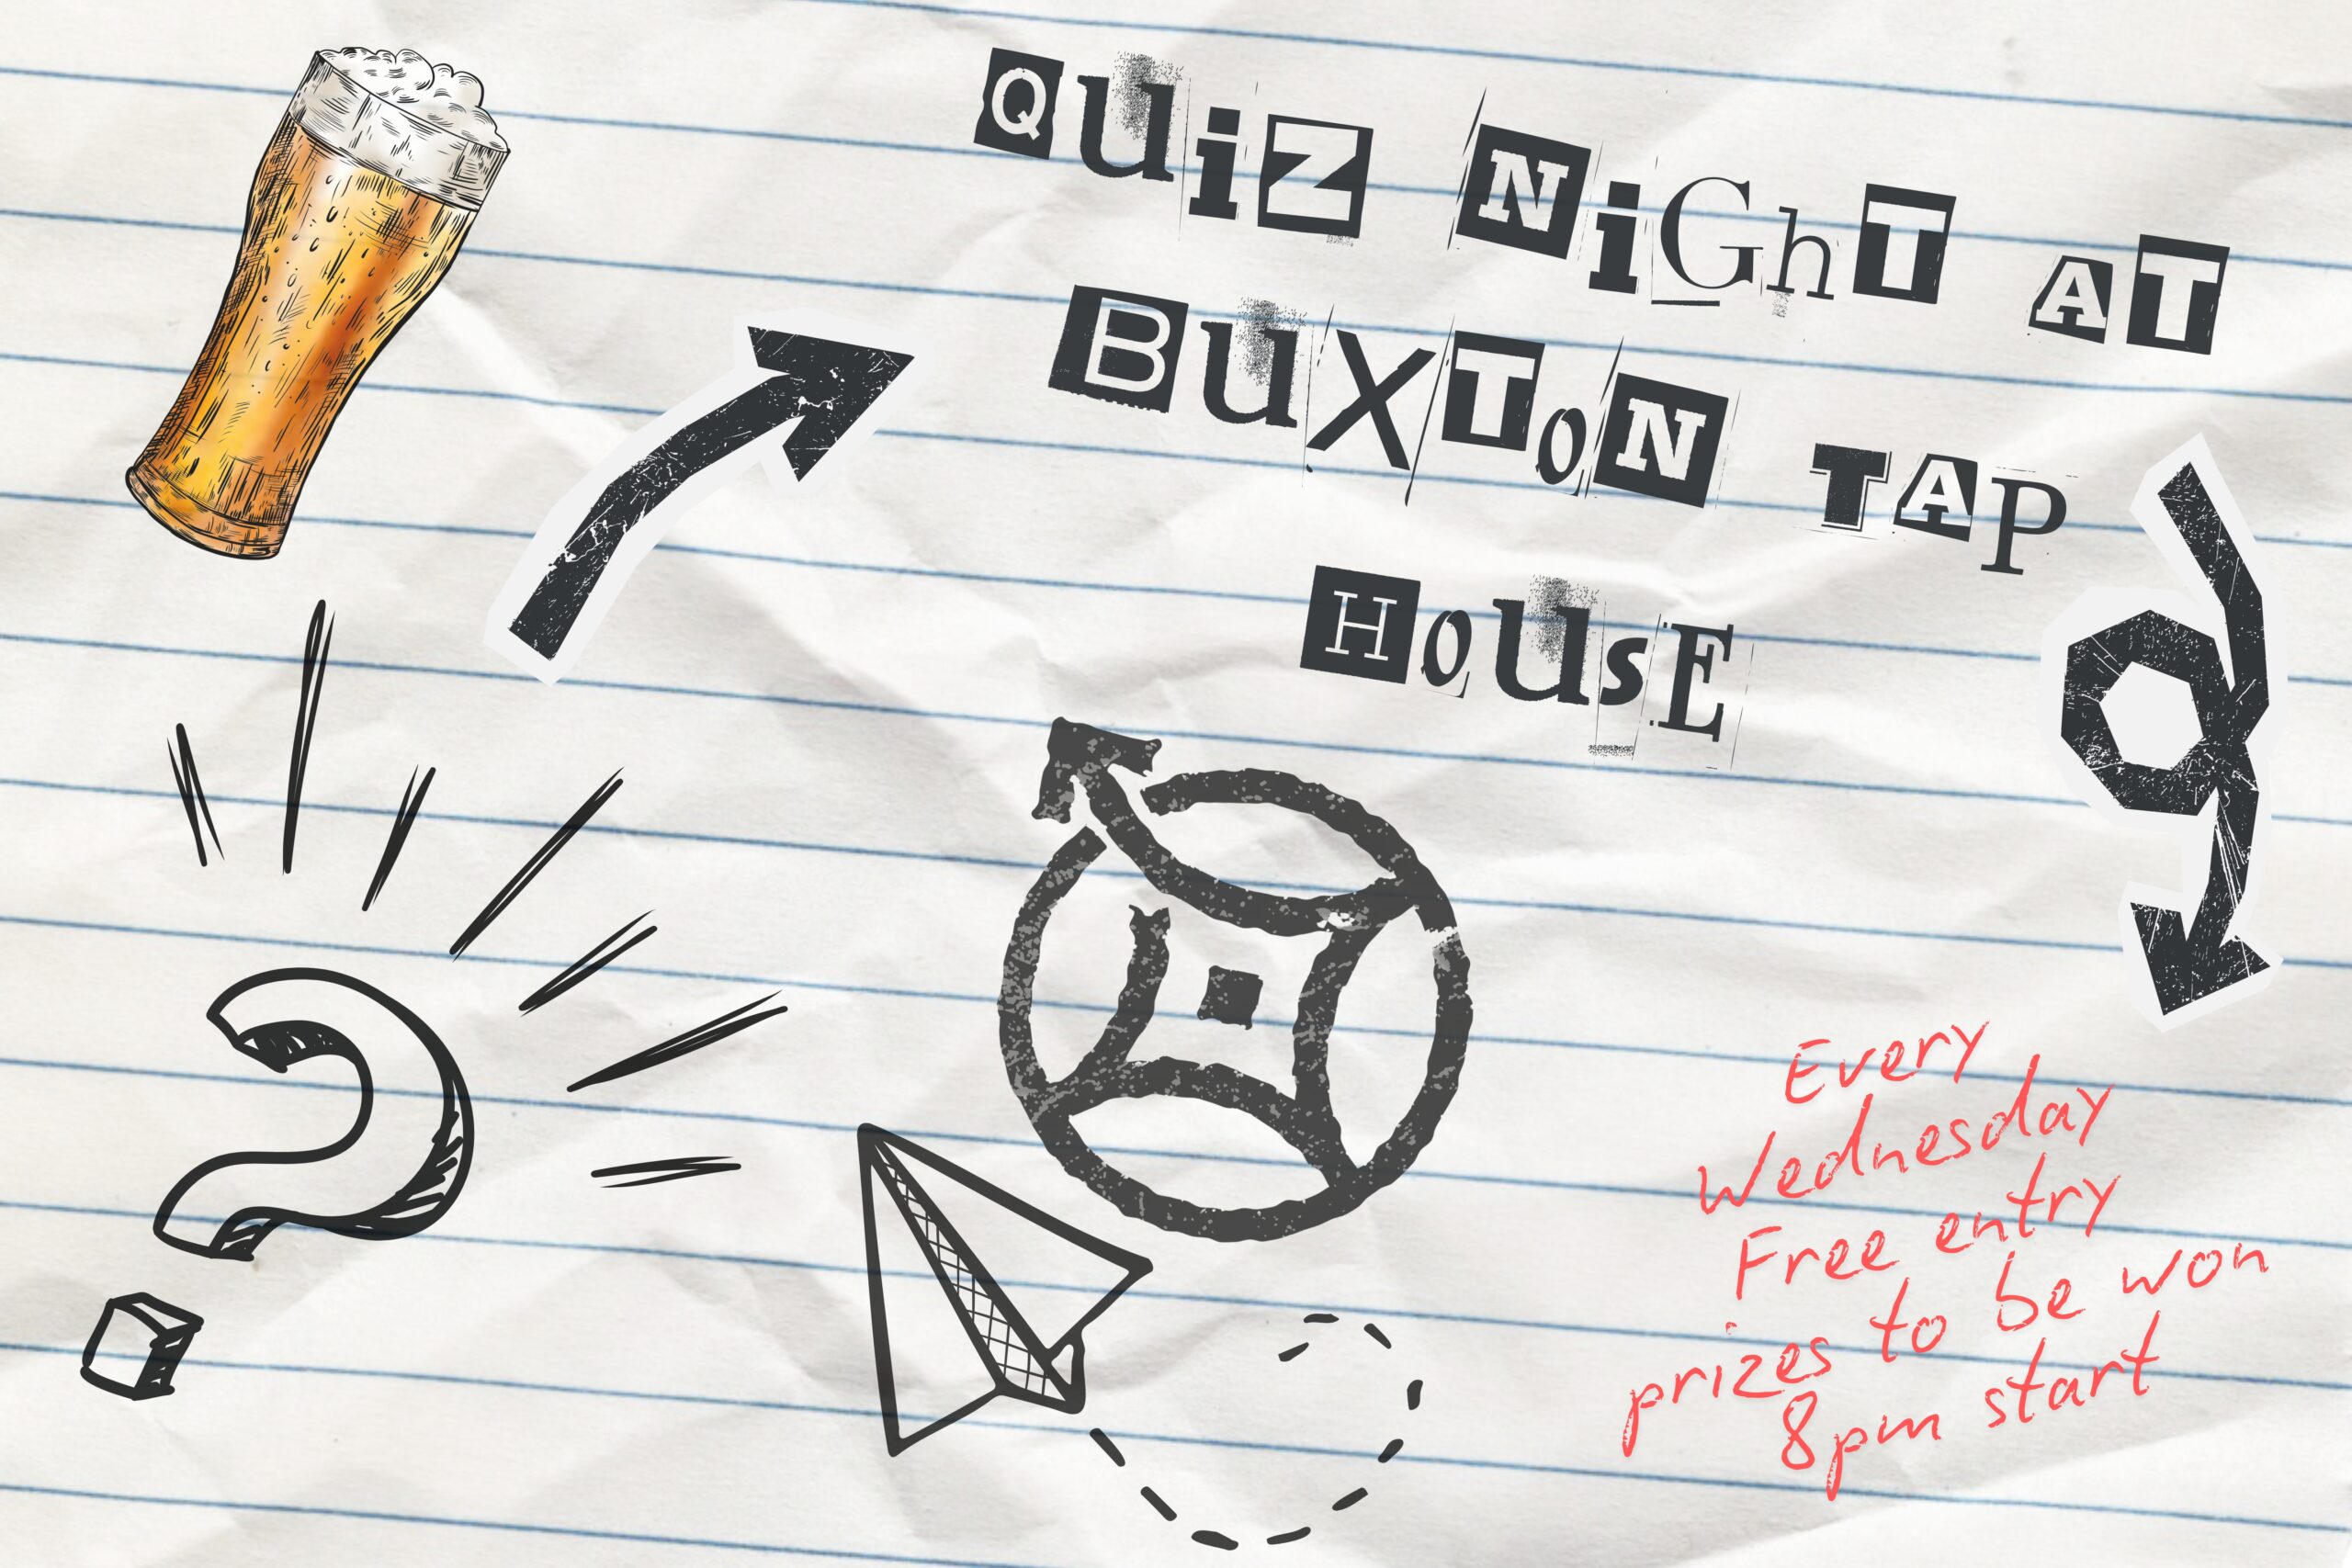 QUiZ NiGhT AT
BUXToN TAP
HoUsE
Every
Wednesday
Free entry
prizes to be won
8pm start